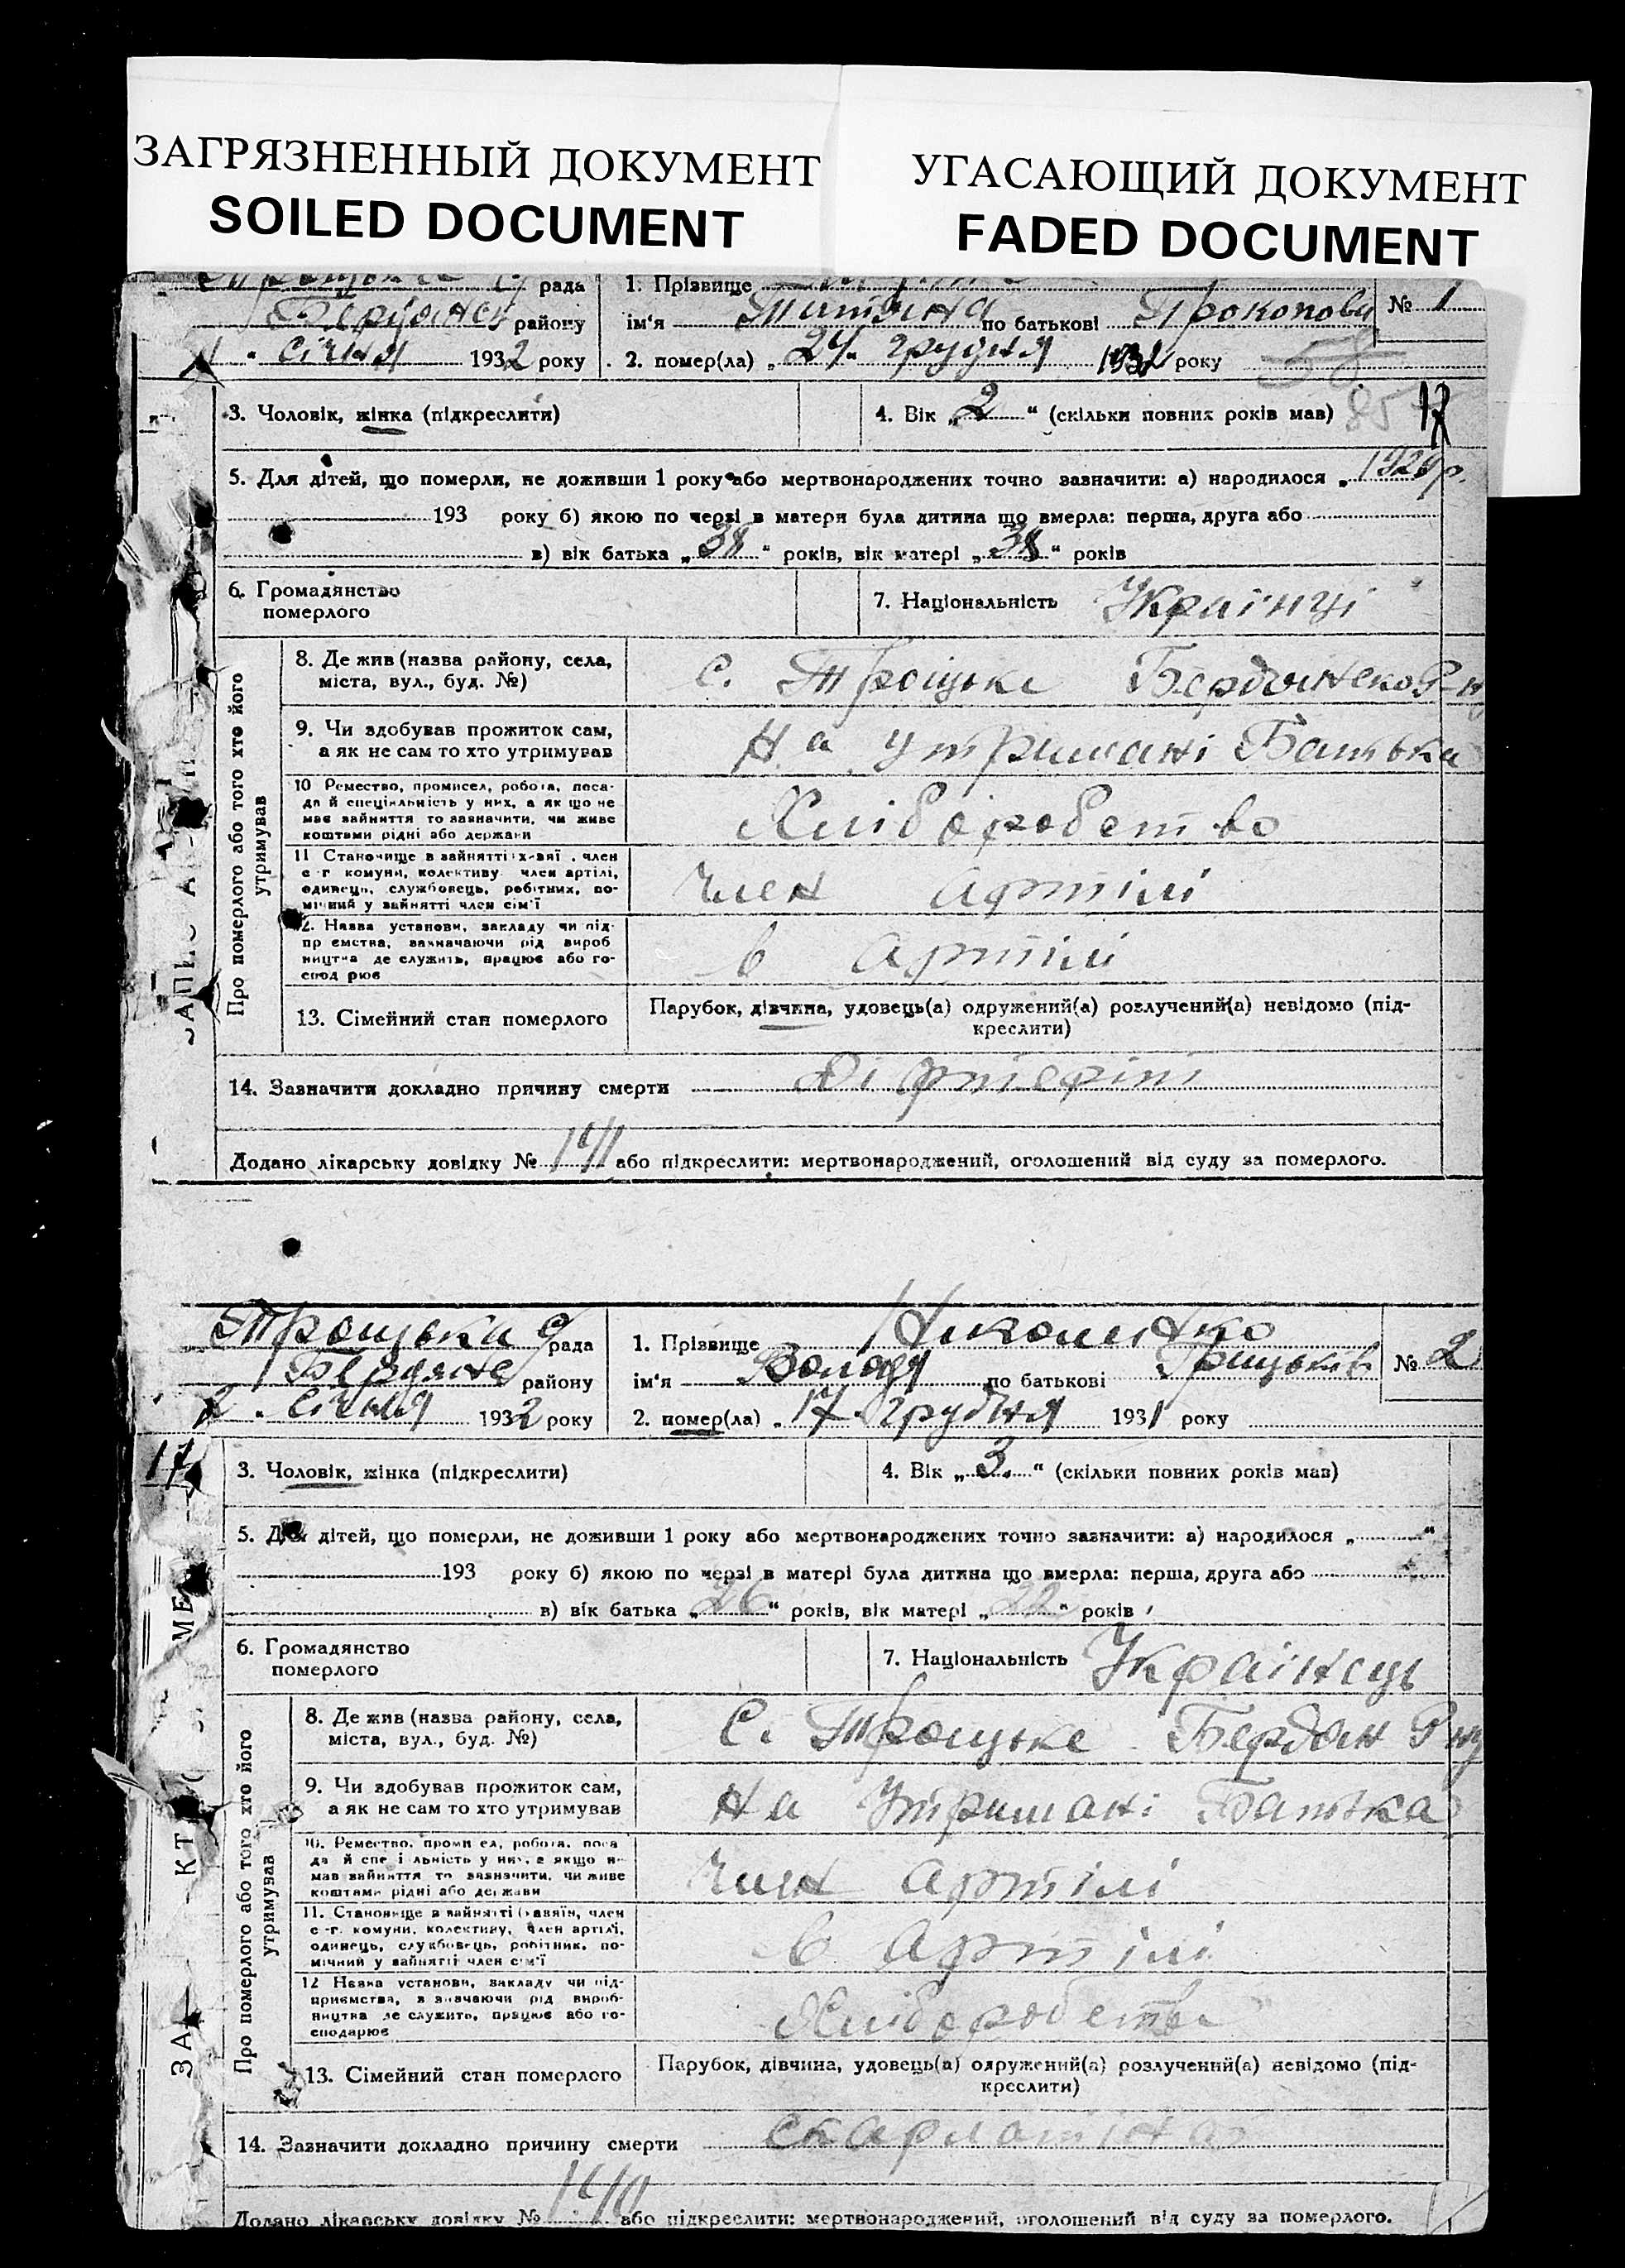 ЗАГРЯЗНЕННЫЙ ДОКУМЕНТ
SOILED DOCUMENT
УГАСАЮЩИЙ ДОКУМЕНТ
FADED DOCUMENT
рада 1. Прізвище
району ім'я Титяна по батькові Прокопови № 1
1 " Січня 1932 року 2. помер(ла) „ 24 " грудня 1932 року 58
3. Чоловік, жінка (підкреслити) 4. Вік „ 2 " (скільки повних років мав) 85 17
5. Для дітей, що померли, не доживши 1 року або мертвонароджених точно зазначити: а) народилося „ 1929 р.
193 року б) якою по черзі в матери була дитина що вмерла: перша, друга або
в) вік батька „ 38 " років, вік матері „ 38 " років
6. Громадянство померлого 7. Національність Українці
Про померлого або того хто його утримував
8. Де жив (назва району, села, міста, вул., буд. №) С. Троцьке Бердянско Р-ну
9. Чи здобував прожиток сам, а як не сам то хто утримував На утримані Батька
10 Ремество, промисел, робота, посада й спеціяльність у них, а як що не має зайняття то зазначити, чи живе коштами рідні або держави Хліборобство
11 Становище в зайнятті член с-г комуни, колективу член артілі, одинець, службовець, робітник, помічний у зайнятті член сім'ї член артілі
12. Назва установи, закладу чи підприємства, зазначаючи рід виробництва де служить, працює або господарює в артілі
13. Сімейний стан померлого Парубок, дівчина, удовець(а) одружений(а) розлучений(а) невідомо (підкреслити)
14. Зазначити докладно причину смерти Діфтеріт
Додано лікарську довідку № 141 або підкреслити: мертвонароджений, оголошений від суду за померлого.
Троцька С/рада 1. Прізвище Николенко
Бердянс району ім'я Володя по батькові Грицьків № 2
2 " Січня 1932 року 2. помер(ла) „ 17 " грудня 1931 року
17
3. Чоловік, жінка (підкреслити) 4. Вік „ 3. " (скільки повних років мав)
5. Для дітей, що померли, не доживши 1 року або мертвонароджених точно зазначити: а) народилося „ "
193 року б) якою по черзі в матері була дитина що вмерла: перша, друга або
в) вік батька „ 26 " років, вік матері „ 22 " років
6. Громадянство померлого 7. Національність Українець
Про померлого або того хто його утримував
8. Де жив (назва району, села, міста, вул., буд. №) С. Троцьке Бердян Р-ну
9. Чи здобував прожиток сам, а як не сам то хто утримував На Утримані Батька
10. Ремество, промисел, робота, посада й спеціяльність у них, а якщо не мав зайняття то зазначити, чи живе коштами рідні або держави член артілі
11. Становище в зайнятті хазяїн, член с-г. комуни, колективу, член артілі, одинець, службовець, робітник, помічний у зайнятті член сім'ї в артілі
12 Назва установи, закладу чи підприємства, зазначаючи рід виробництва де служить, працює або господарює Хліборобство
13. Сімейний стан померлого Парубок, дівчина, удовець(а) одружений(а) розлучений(а) невідомо (підкреслити)
14. Зазначити докладно причину смерти скарлатіна
Додано лікарську довідку № 140 або підкреслити: мертвонароджений, оголошений від суду за померлого.